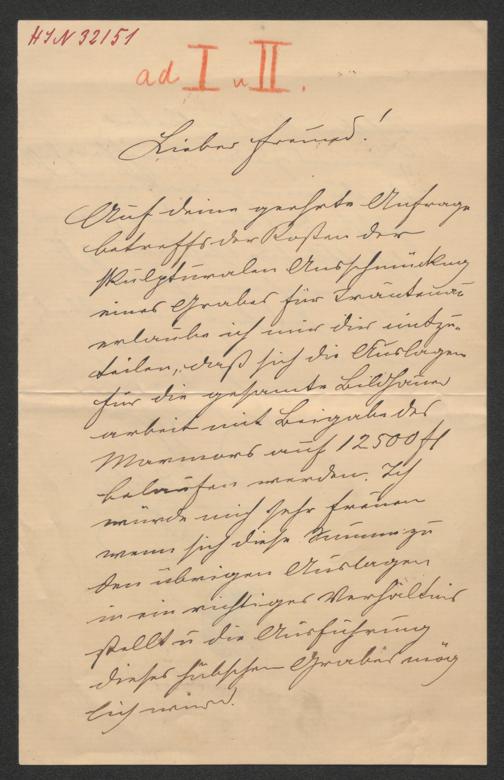 HIN 32151
ad I u II.
Lieber Freund!
Auf deine geehrte Anfrage
betreffs der Kosten der
skulpturalen Ausschmückung
eines Grabes für Trautenau
erlaube ich mir dir mitzu-
teilen, daß sich die Auslagen
für die gesamte Bildhauer
arbeit mit Beigabe des
Marmors auf 12500 fl
belaufen werden. Ich
würde mich sehr freuen
wenn sich diese Summe zu
den übrigen Auslagen
in ein richtiges Verhältnis
stellt u die Ausführung
dieses hübschen Grabes mög
lich wird.